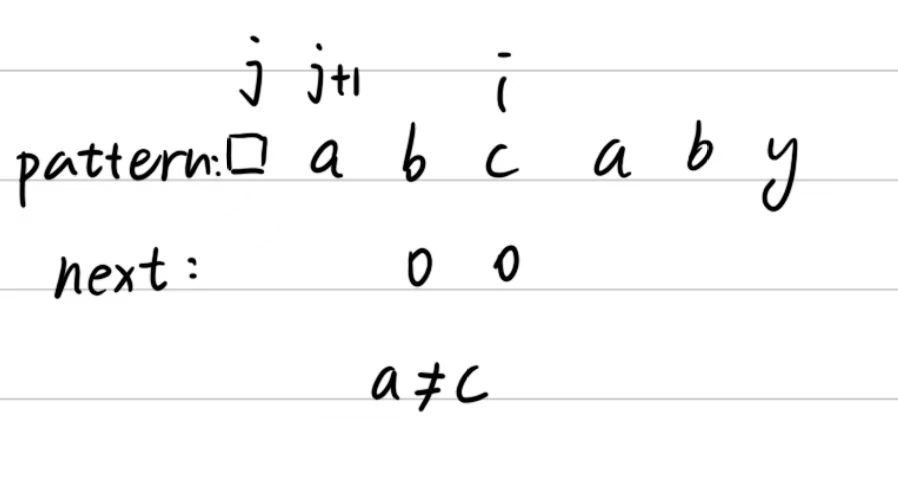 j j+1 i
pattern:□ a b c a b y
next: 0 0
a≠c